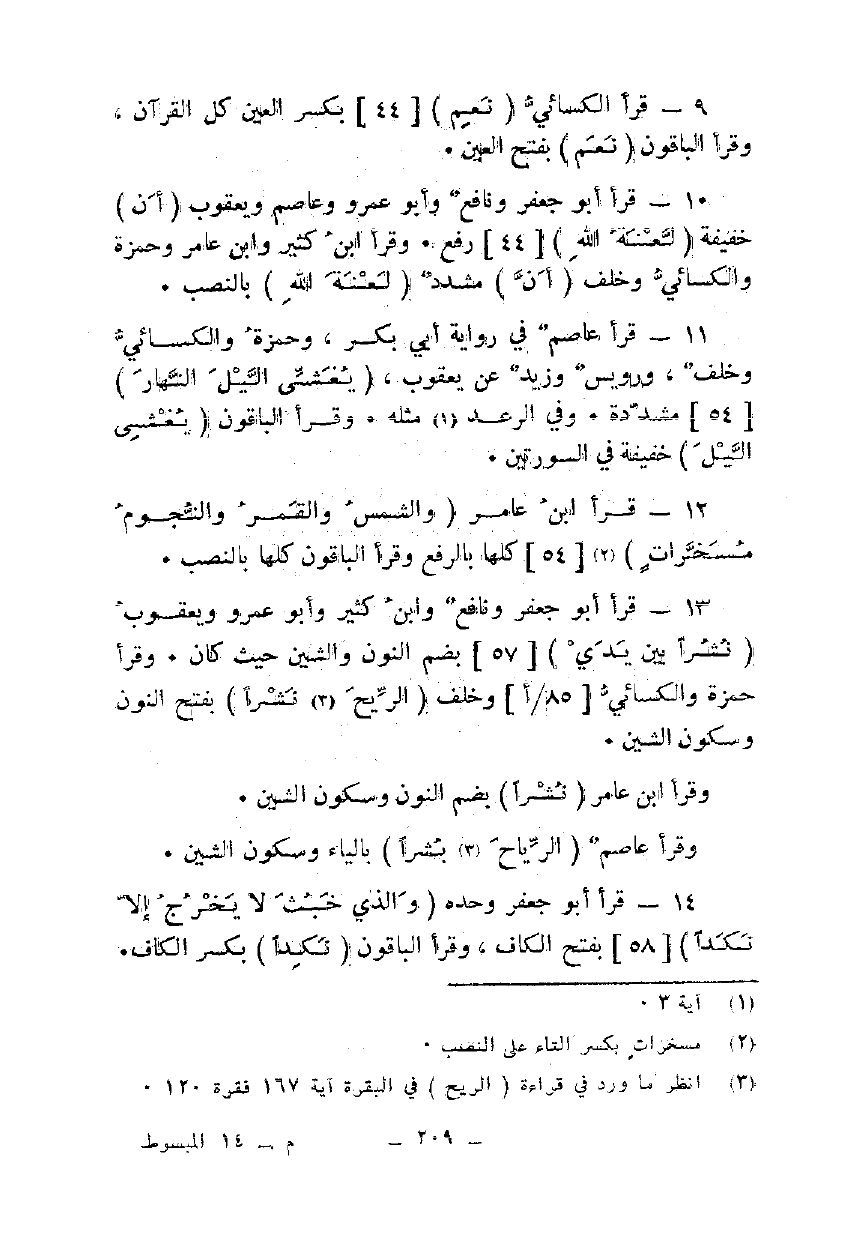 ٩ ــ قرأ الكسائيُّ ( نَعِم ) [ ٤٤ ] بكسر العين كل القرآن ،
وقرأ الباقون ( نَعَم ) بفتح العين ٠
١٠ ــ قرأ أبو جعفر ونافعٌ وأبو عمرو وعاصم ويعقوب ( أَن )
خفيفة ( لَّعْنَةُ اللهِ ) [ ٤٤ ] رفع ٠ وقرأ ابنُ كثير وابن عامر وحمزة
والكسائيُّ وخلف ( أَنَّ ) مشددٌ ( لَعْنَةَ اللهِ ) بالنصب ٠
١١ ــ قرأ عاصمٌ في رواية أبي بكر ، وحمزةُ والكسائيُّ
وخلفٌ ، ورويسٌ وزيدٌ عن يعقوب ، ( يُغَشِّى الَّيْلَ النَّهارَ )
[ ٥٤ ] مشدّدة ٠ وفي الرعد (١) مثله ٠ وقرأ الباقون ( يُغْشِى
الَّيْلَ ) خفيفة في السورتين ٠
١٢ ــ قرأ ابنُ عامر ( والشمسُ والقَمرُ والنُّجومُ
مُسَخَّراتٍ ) (٢) [ ٥٤ ] كلها بالرفع وقرأ الباقون كلها بالنصب ٠
١٣ ــ قرأ أبو جعفر ونافعٌ وابنُ كثير وأبو عمرو ويعقوبُ
( نُشُراً بين يَدَيْ ) [ ٥٧ ] بضم النون والشين حيث كان ٠ وقرأ
حمزة والكسائيُّ [ ٨٥/أ ] وخلف ( الرِّيحَ (٣) نَشْراً ) بفتح النون
وسكون الشين ٠
وقرأ ابن عامر ( نُشْراً ) بضم النون وسكون الشين ٠
وقرأ عاصمٌ ( الرِّياحَ (٣) بُشراً ) بالباء وسكون الشين ٠
١٤ ــ قرأ أبو جعفر وحده ( وَالذي خَبُثَ لا يَخْرُجُ إلاّ
نَكَداً ) [ ٥٨ ] بفتح الكاف ، وقرأ الباقون ( نَكِداً ) بكسر الكاف٠
(١) آية ٣ ٠
(٢) مسخراتٍ بكسر التاء على النصب ٠
(٣) انظر ما ورد في قراءة ( الريح ) في البقرة آية ١٦٧ فقرة ١٢٠ ٠
ــ ٢٠٩ ــ
م ــ ١٤ المبسوط